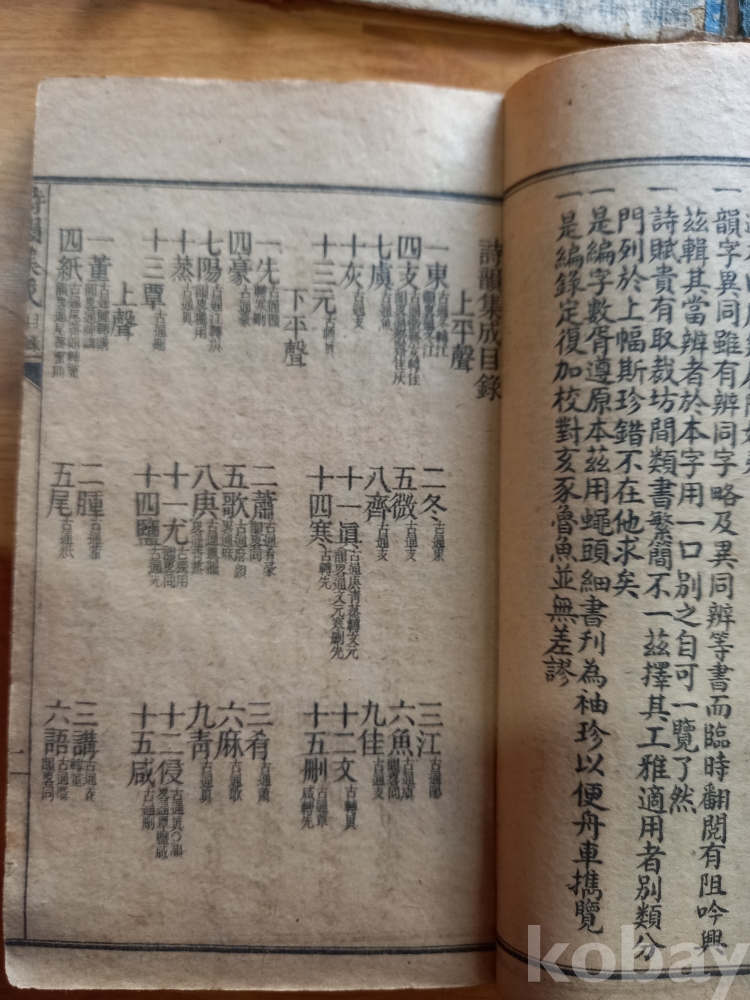 一韻字異同雖有辨同字略及異同辨等書而臨時翻閱有阻吟興
茲輯其當辨者於本字用一口別之自可一覽了然
一詩賦貴有取裁坊間類書繁簡不一茲擇其工雅適用者別類分
門列於上幅斯珍錯不在他求矣
一是編字數胥遵原本茲用蠅頭細書刊為袖珍以便舟車攜覽
一是編錄定復加校對亥豕魯魚並無差謬
詩韻集成目錄
上平聲
一東 二冬古通東 三江古通陽
四支 五微古通支 六魚
七虞古通魚 八齊古通支 九佳古通支
十灰古通支 十一真 十二文古轉真
十三元 十四寒古轉先 十五刪
下平聲
一先 二蕭 三肴古通蕭
四豪古通蕭 五歌 六麻古通歌
七陽 八庚 九青古通真
十蒸古通真 十一尤 十二侵
十三覃古通刪 十四鹽古通先 十五咸古通刪
上聲
一董 二腫古通董 三講
四紙 五尾古通紙 六語
詩韻集成 目錄
一
kobay